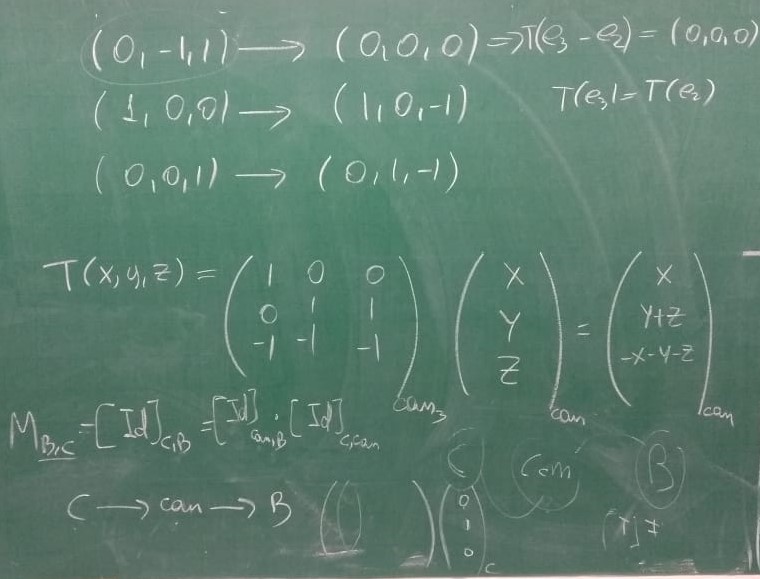 (0,-1,1) → (0,0,0) ⇒ T(e₃ - e₂) = (0,0,0)
(1,0,0) → (1,0,-1) T(e₃) = T(e₂)
(0,0,1) → (0,1,-1)
T(x,y,z) = ( 1 0 0 ) ( X ) = ( X )
( 0 1 1 ) ( Y ) ( Y+Z )
( -1 -1 -1 )can₃ ( Z )can ( -X-Y-Z )can
M_B,C = [Id]_C,B = [Id]_can,B · [Id]_C,can
C can B
C → can → B ( ) ( 0 1 0 )_C